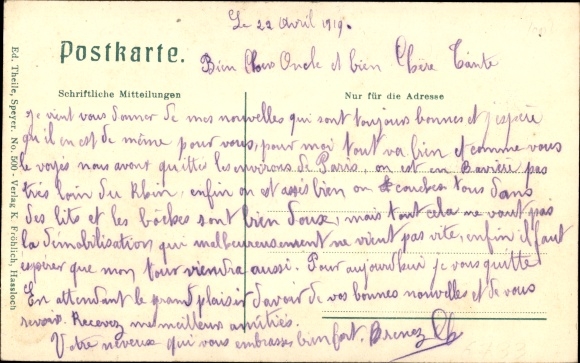 Le 22 Avril 1919.
Postkarte.
Bien Chers Oncle et bien Chère Tante
Schriftliche Mitteilungen
Nur für die Adresse
Je vient vous donner de mes nouvelles qui sont toujours bonnes et j'espère
qu'il en est de même pour vous, pour moi tout va bien et comme vous
le voyés nous avont quittés les environs de Paris, on est en Bavière pas
très loin du Rhin, enfin on est asses bien on couches tous dans
des lits et les bôches sont bien doux, mais tout cela ne vaut pas
la démobilisation, qui malheureusement ne vient pas vite, enfin il faut
espérer que mon tour viendra aussi. Pour aujourdhui je vous quitte
En attendant le grand plaisir d'avoir de vos bonnes nouvelles et de vous
revoir. Recevez mes meilleurs amitiés.
Votre neveux qui vous embrasses bien fort. Brenez
Ed. Theile, Speyer. No. 500 - Verlag K. Fröhlich, Hassloch